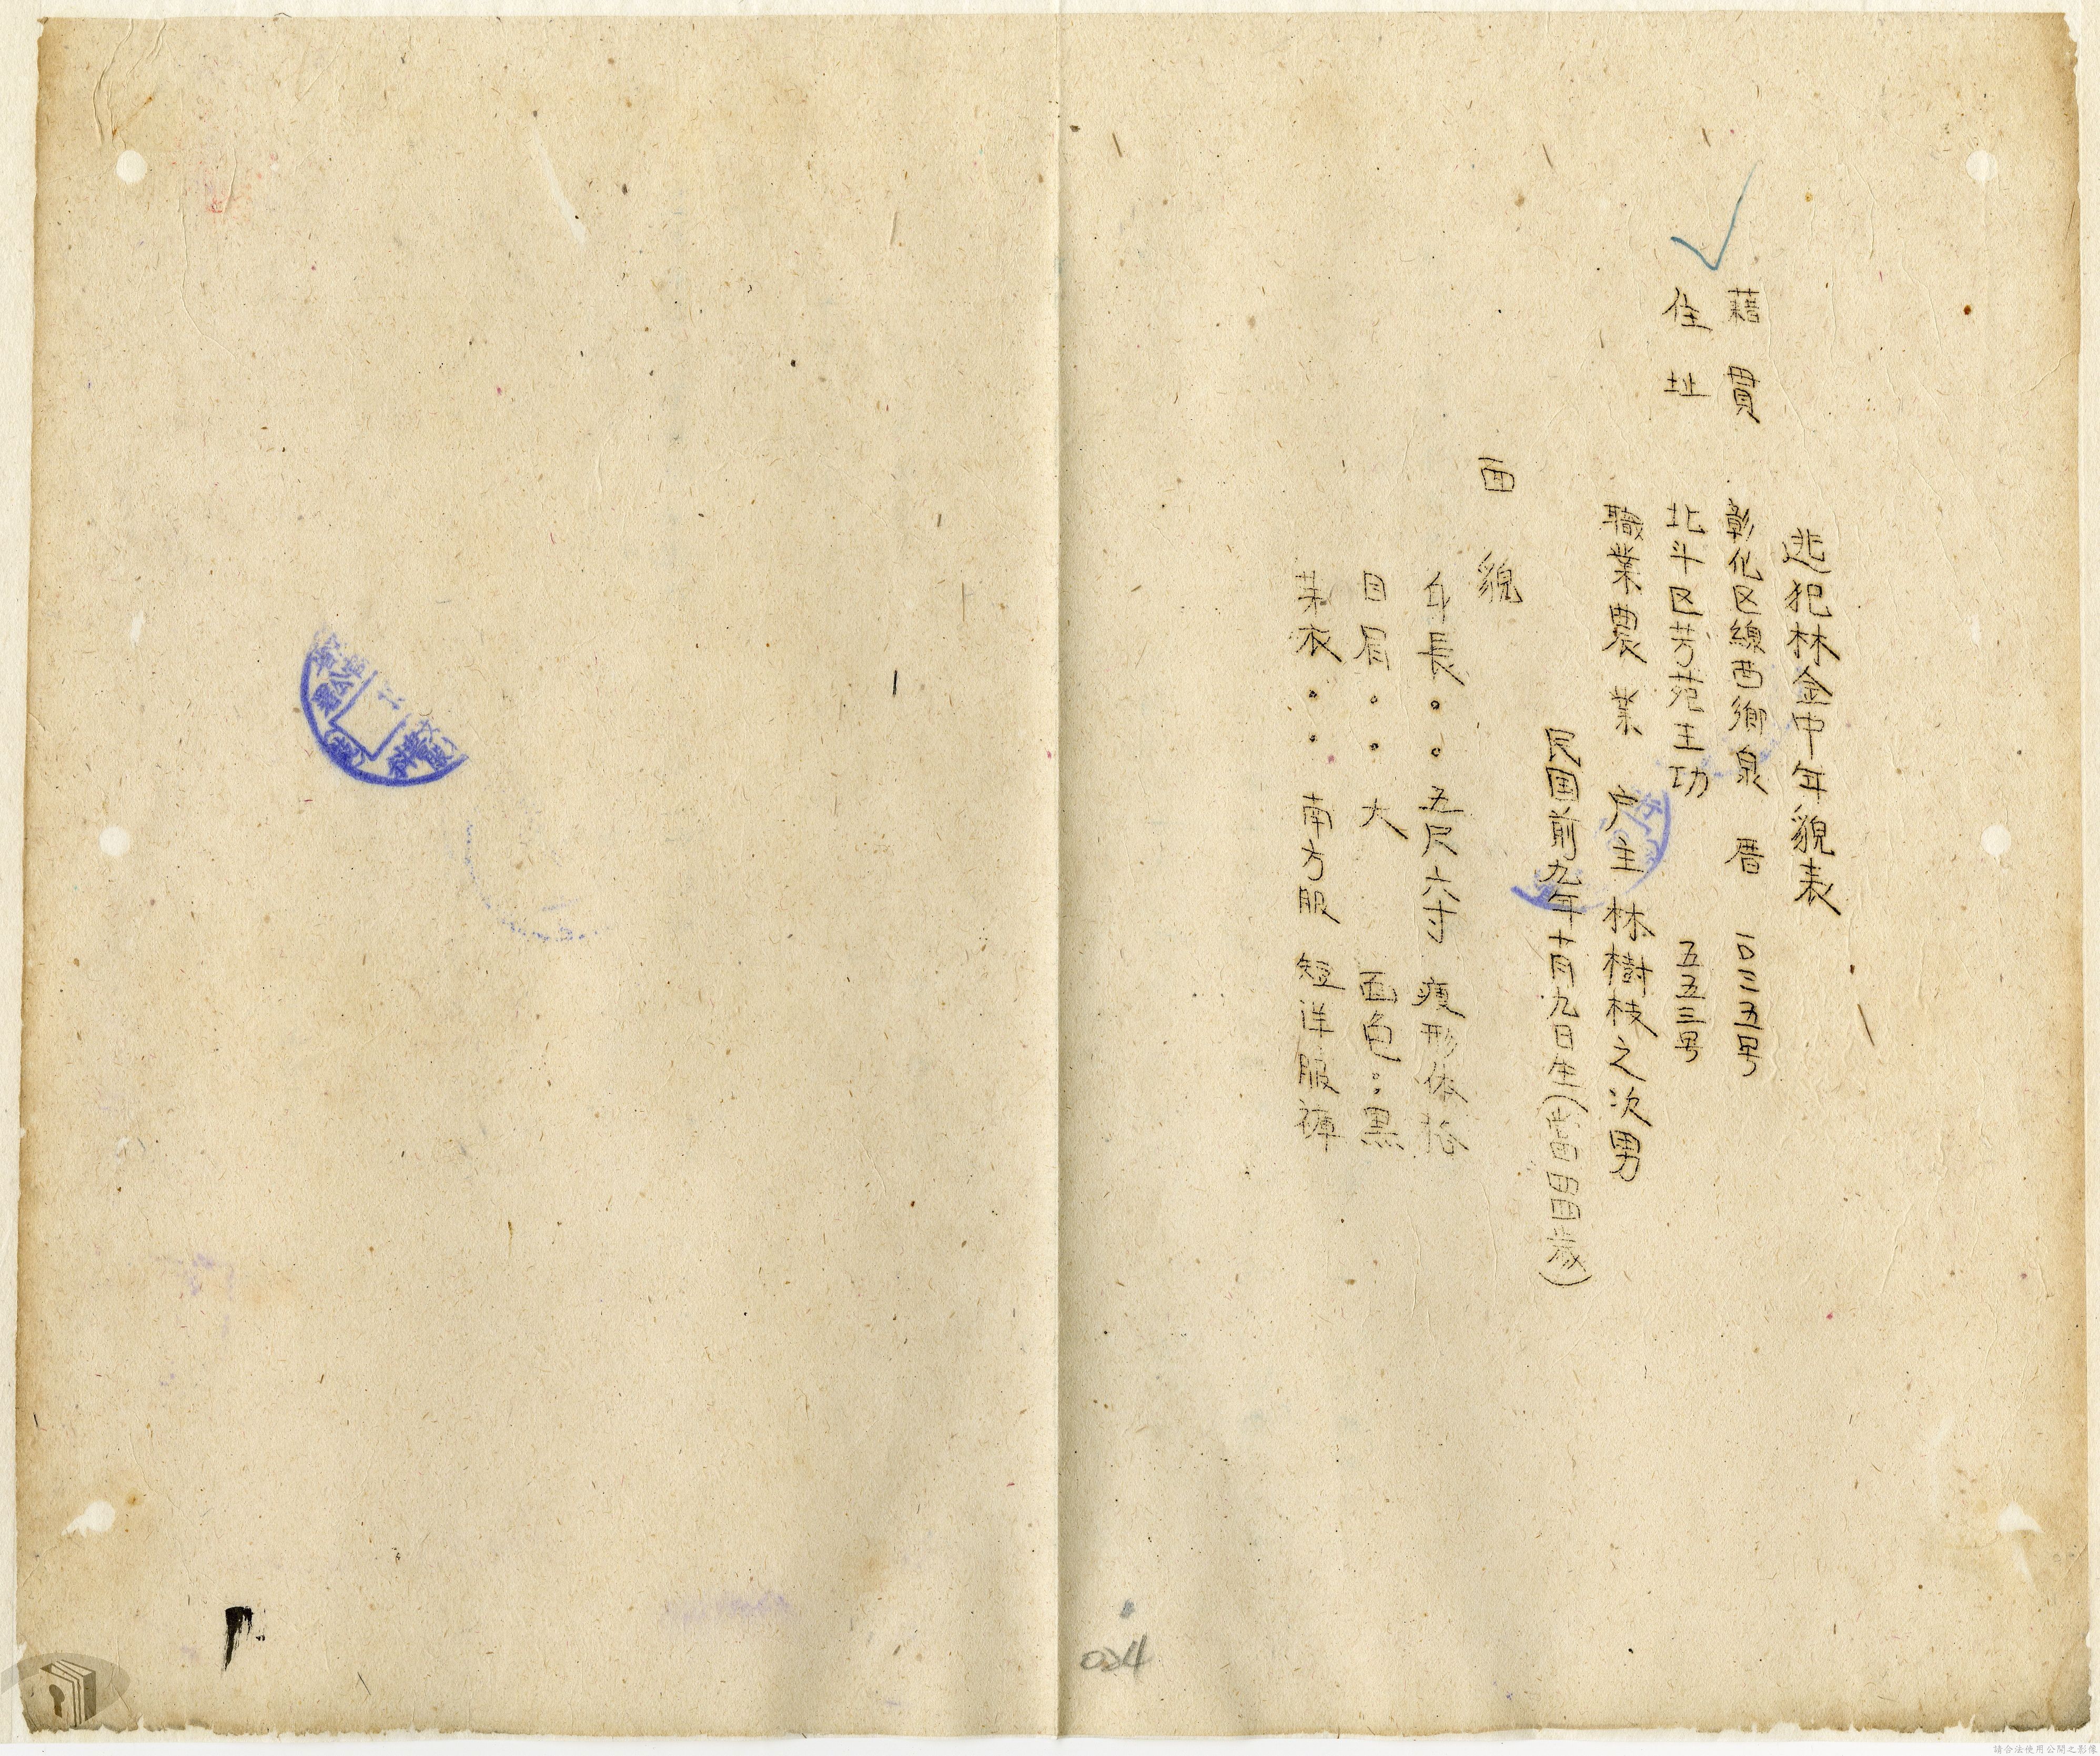 逃犯林金中年貌表
藉貫 彰化区線西鄉泉厝 一〇三五号
住址 北斗区芳苑王功 五五三号
職業農業 戶主林樹枝之次男
民国前九年十月九日生(當四四歲)
面貌
年長。。五尺六寸 瘦形体格
目眉。。大 面色:黒
著衣。。南方服 短洋服褲
034
請合法使用公開之影像